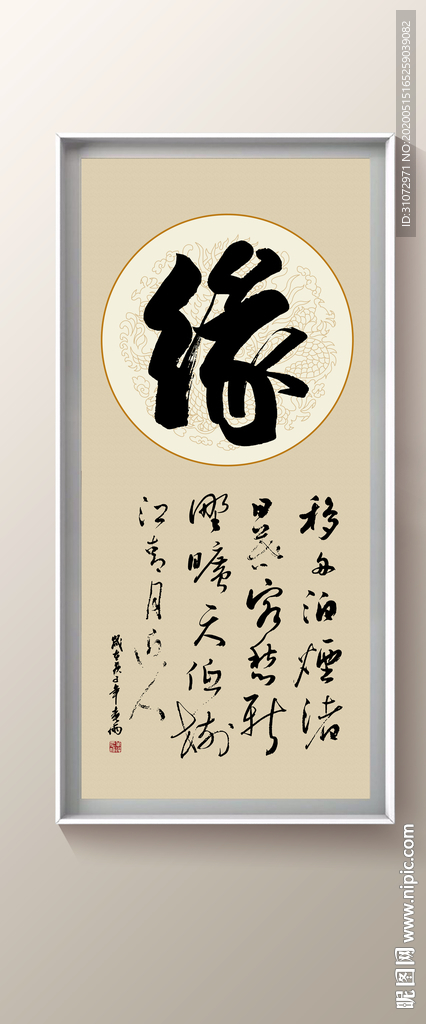 缘
移舟泊煙渚
日暮客愁新
野曠天低樹
江清月近人
ID:31072971 NO:20200515165259039082
昵图网 www.nipic.com